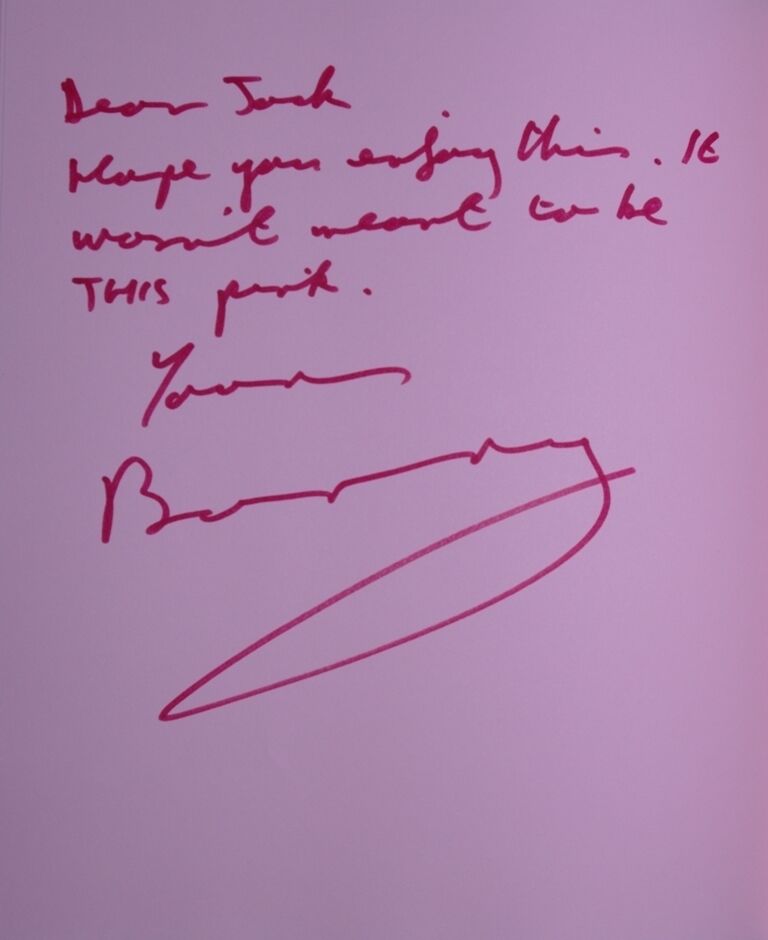 Dear Jack
Hope you enjoy this. It
wasn't meant to be
THIS pink.
Yours